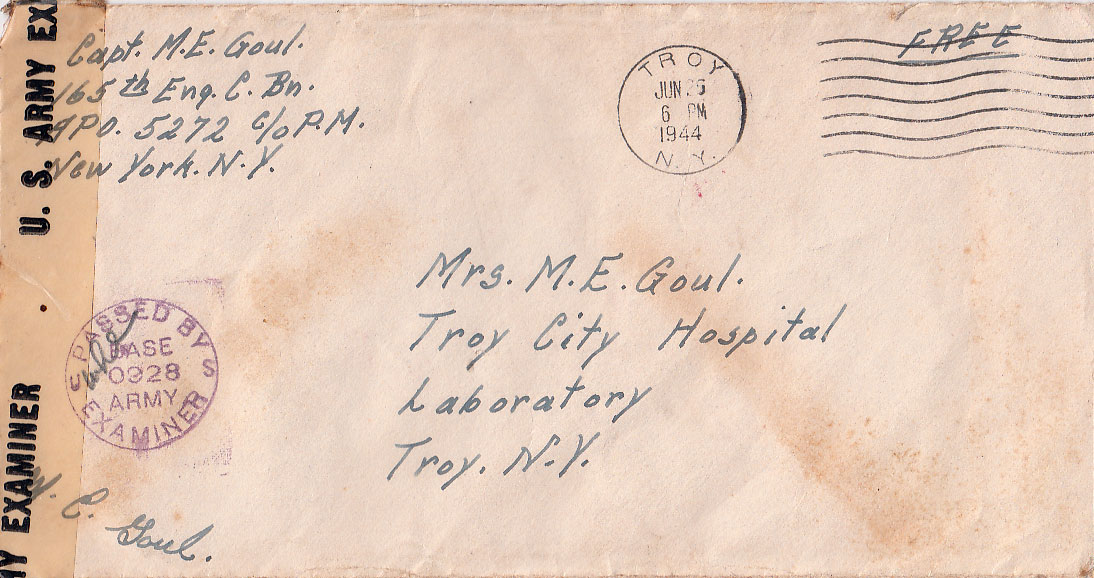 Capt. M.E. Goul.
165th Eng. C. Bn.
APO. 5272 c/o P.M.
New York. N.Y.
FREE
TROY
JUN 26
6 PM
1944
N.Y.
Mrs. M.E. Goul.
Troy City Hospital
Laboratory
Troy. N.Y.
U. S. ARMY EX
MY EXAMINER
PASSED BY
U S
BASE
0928
ARMY
EXAMINER
Goul.